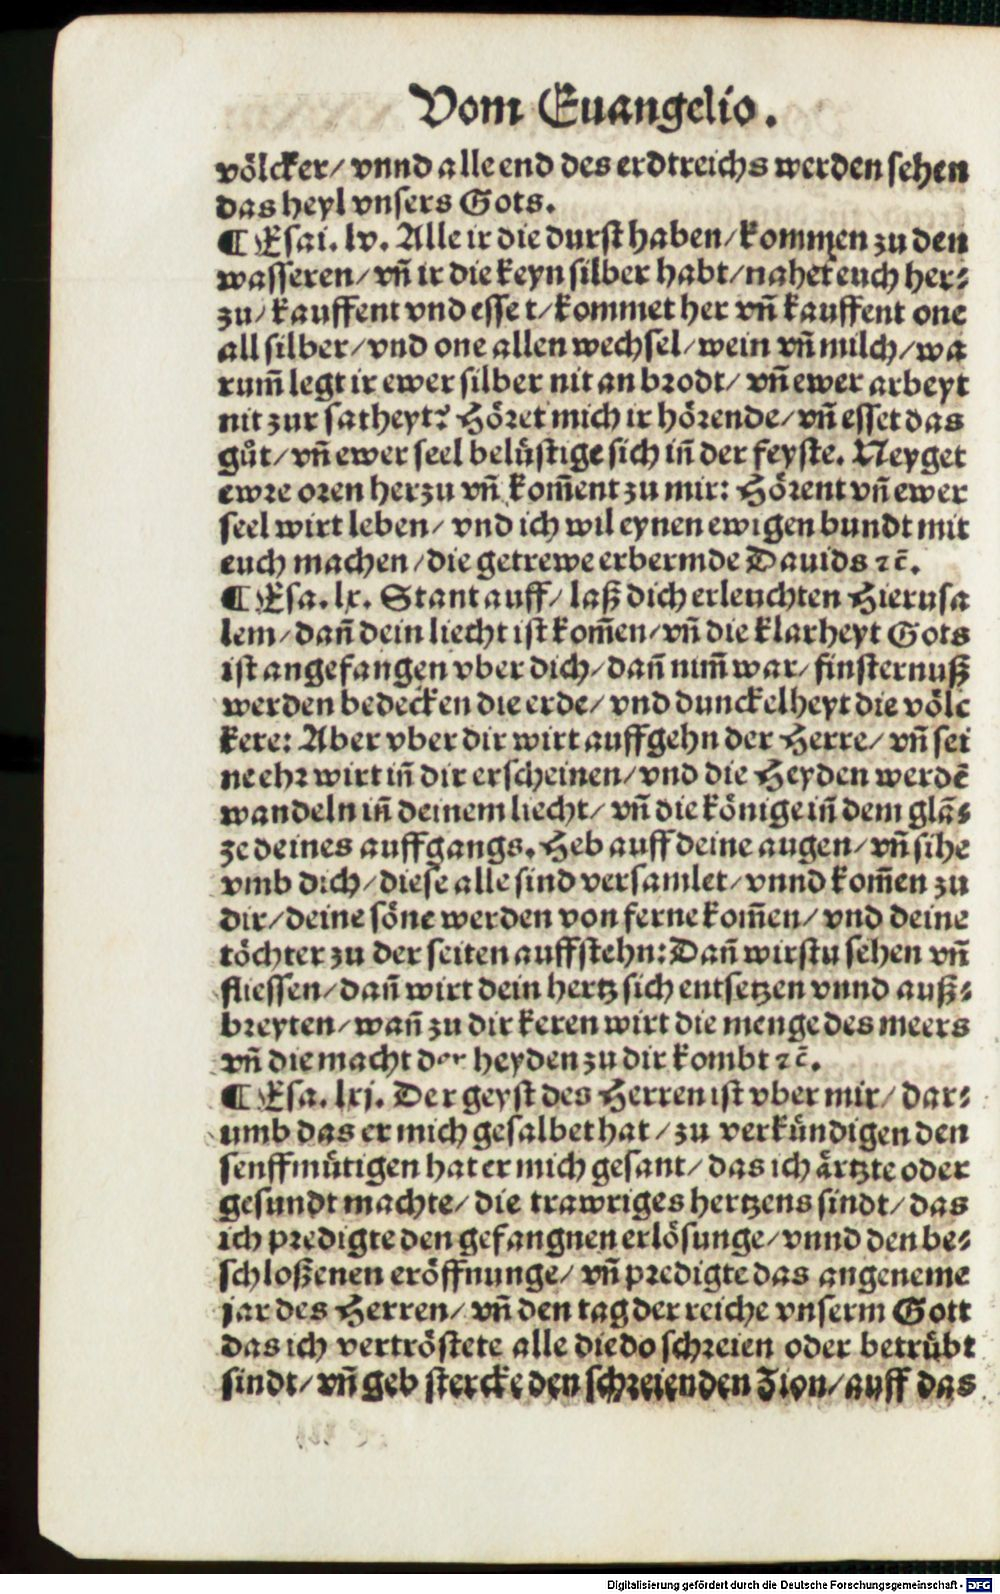 Vom Euangelio.
völcker/ vnnd alle end des erdtreichs werden sehen
das heyl vnsers Gots.
¶ Esai. lv. Alle ir die durst haben/ kommen zu den
wasseren/ vñ ir die keyn silber habt/ nahet euch her⸗
zu/ kauffent vnd esset/ kommet her vñ kauffent one
all silber/ vnd one allen wechsel/ wein vñ milch/ wa
rum̃ legt ir ewer silber nit an brodt/ vñ ewer arbeyt
nit zur satheyt? Höret mich ir hörende/ vñ esset das
gůt/ vñ ewer seel belüstige sich iñ der feyste. Neyget
ewre oren herzu vñ kom̃ent zu mir: Hörent vñ ewer
seel wirt leben/ vnd ich wil eynen ewigen bundt mit
euch machen/ die getrewe erbermde Dauids ꝛc̃.
¶ Esa. lx. Stant auff/ laß dich erleuchten Hierusa
lem/ dañ dein liecht ist kom̃en/ vñ die klarheyt Gots
ist angefangen vber dich/ dañ nim̃ war/ finsternuß
werden bedecken die erde/ vnd dunckelheyt die völc
kere: Aber vber dir wirt auffgehn der Herre/ vñ sei
ne ehr wirt iñ dir erscheinen/ vnd die Heyden werdẽ
wandeln iñ deinem liecht/ vñ die könige iñ dem glã⸗
ze deines auffgangs. Heb auff deine augen/ vñ sihe
vmb dich/ diese alle sind versamlet/ vnnd kom̃en zu
dir/ deine söne werden von ferne kom̃en/ vnd deine
töchter zu der seiten auffstehn: Dañ wirstu sehen vñ
fliessen/ dañ wirt dein hertz sich entsetzen vnnd auß⸗
breyten/ wañ zu dir keren wirt die menge des meers
vñ die macht der heyden zu dir kombt ꝛc̃.
¶ Esa. lxj. Der geyst des Herren ist vber mir/ dar⸗
umb das er mich gesalbet hat/ zu verkündigen den
senffmütigen hat er mich gesant/ das ich ärtzte oder
gesundt machte/ die trawriges hertzens sindt/ das
ich predigte den gefangnen erlösunge/ vnnd den be⸗
schloßenen eröffnunge/ vñ predigte das angeneme
jar des Herren/ vñ den tag der reiche vnserm Gott
das ich vertröstete alle die do schreien oder betrübt
sindt/ vñ geb stercke den schreienden Zion/ auff das
Digitalisierung gefördert durch die Deutsche Forschungsgemeinschaft - DFG